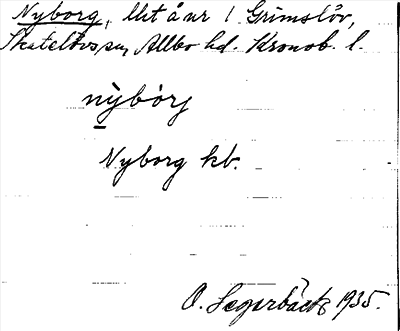 Nyborg, llt å nr 1 Grimslöv,
Skatelövs sn, Allbo hd. Kronob. l.
nỳbòrj
Nyborg kb.
O. Segerbäck 1935.